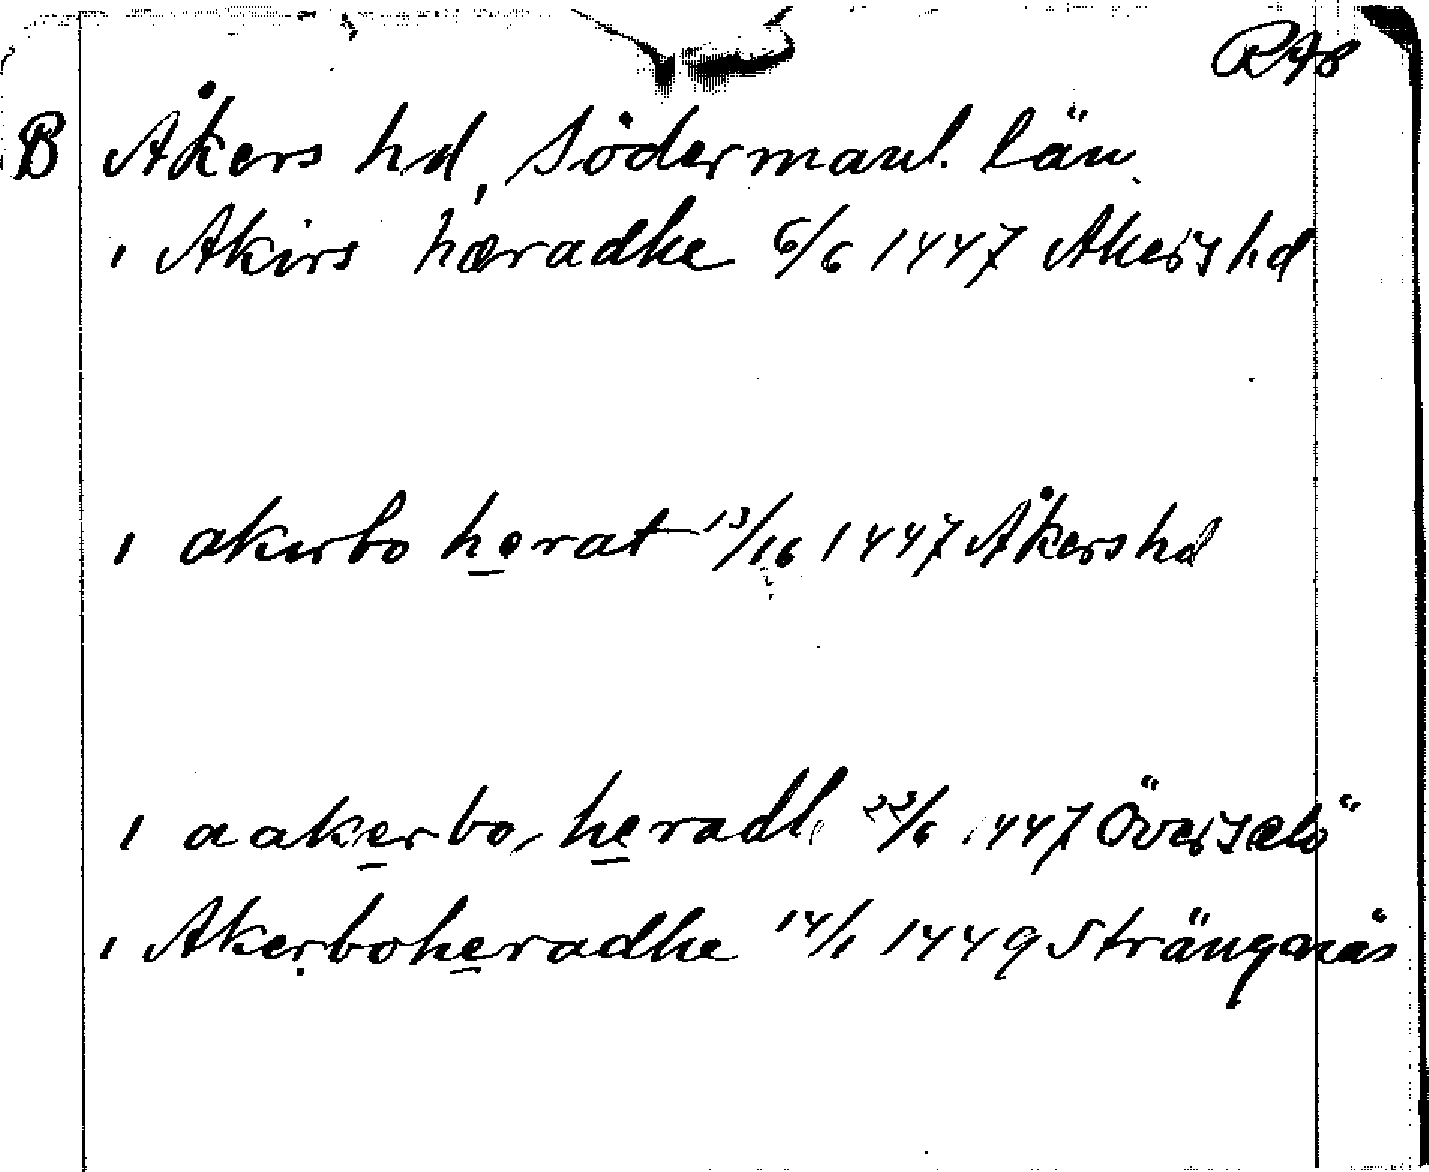 R98
B Åkers hd, Södermanl. län.
ı Akirs hæradhe 6/6 1447 Akers hd
ı akirbo herat 13/16 1447 Åkers hd
ı aakerbo heradh 22/6 1447 Överselö
ı Akerboheradhe 14/1 1449 Strängnäs